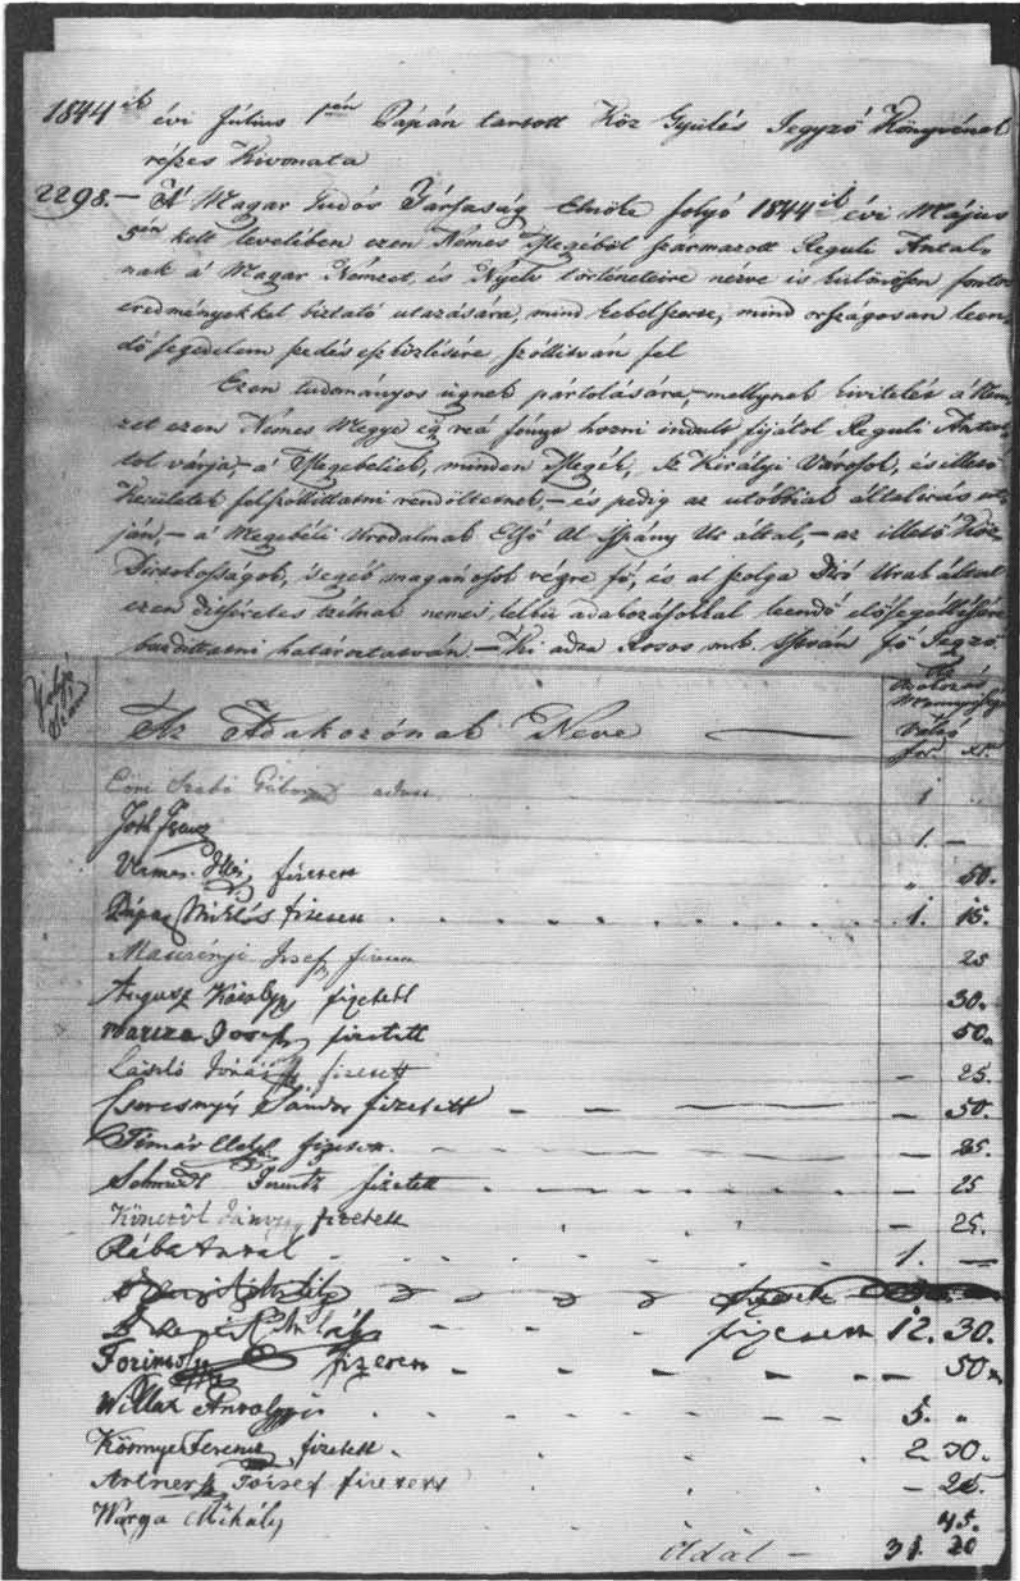 1844ik évi Július 1sőn Pápán tartott Köz Gyűlés Jegyző Könyvének
részes Kivonata
2298. – A' Magyar Tudós Társaság Elnöke folyó 1844ik évi Május
5én kelt levelében ezen Nemes Megyéből származott Reguli Antal-
nak a' Magyar Nemzet, és Nyelv történeteire nézve is különösen fontos
eredményekkel biztató utazására, mind kebelszerte, mind országosan leen-
dő segedelem szedés eszközlésére szóllitván fel
Ezen tudományos ügynek pártolására, – mellynek kivitelét a' Nem-
zet ezen Nemes Megye reá fényt hozni indult fijától Reguli Antal-
tol várja, – a' Megebeliek, minden Megék, Sz Királyi Városok, és illető
Kerületek felszollittatni rendeltetnek, – és pedig az utóbbiak általirás út-
ján, – a' Megebéli Urodalmak Első Al Ispány Ur által, – az illető Köz-
Birtokosságok, magánosok végre fő, és al szolga Biró Urak által
ezen ditséretes tzélnak nemes lelkü adakozásokkal leendő elősegéllésére
buzdittatni határoztatván. – Ki adta Rosos m.k. István fő Jegző
Folyó
Szám
Az Adakozónak Neve
Az
adakozás
Mennyisége
Váltó
for. xr.
Szabó Gábor adott 1
Tóth Ferenc 1. –
Vermes Illés fizetett " 50.
Pápay Miklós fizetett 1. 15.
József fizetett 25
Augusz Károly fizetett 30.
József fizetett 50.
László fizetett – 25.
Cseresnyés Sándor fizetett – 50.
Timár fizetett – 25.
Schmidt Ferentz fizetett – 25
János fizetett – 25.
Rába Antal 1. –
Mihály fizetett 12. 30.
fizetett – 50
Willax Antal 5. "
Környei Ferencz fizetett 2 30.
Artner József fizetett – 25.
Varga Mihály 45.
Oldal – 31. 20